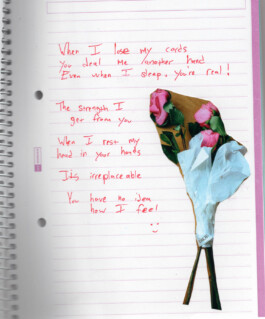 When I lose my cards
You deal me another hand
Even when I sleep, you're real!
The strength I
get from you
When I rest my
hand in your hands
It's irreplaceable
You have no idea
how I feel
:)